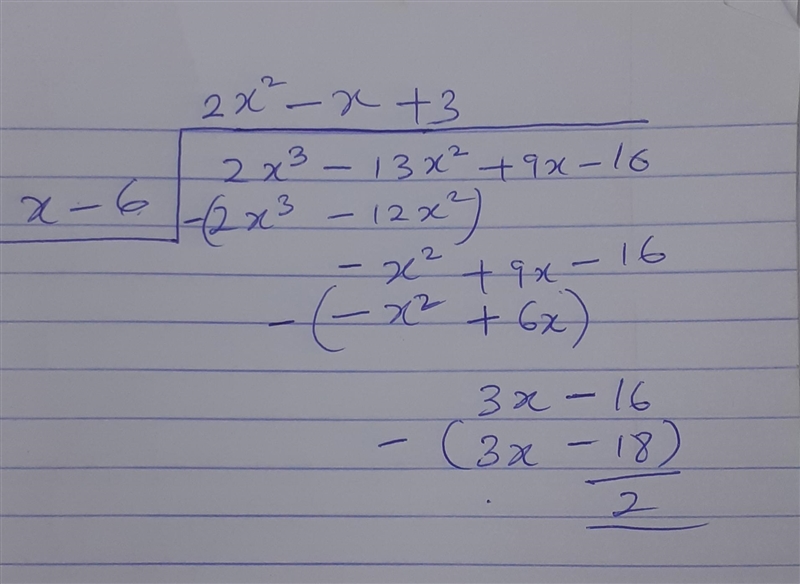 2x² - x + 3
x - 6 2x³ - 13x² + 9x - 16
-(2x³ - 12x²)
- x² + 9x - 16
- (- x² + 6x)
3x - 16
- (3x - 18)
2